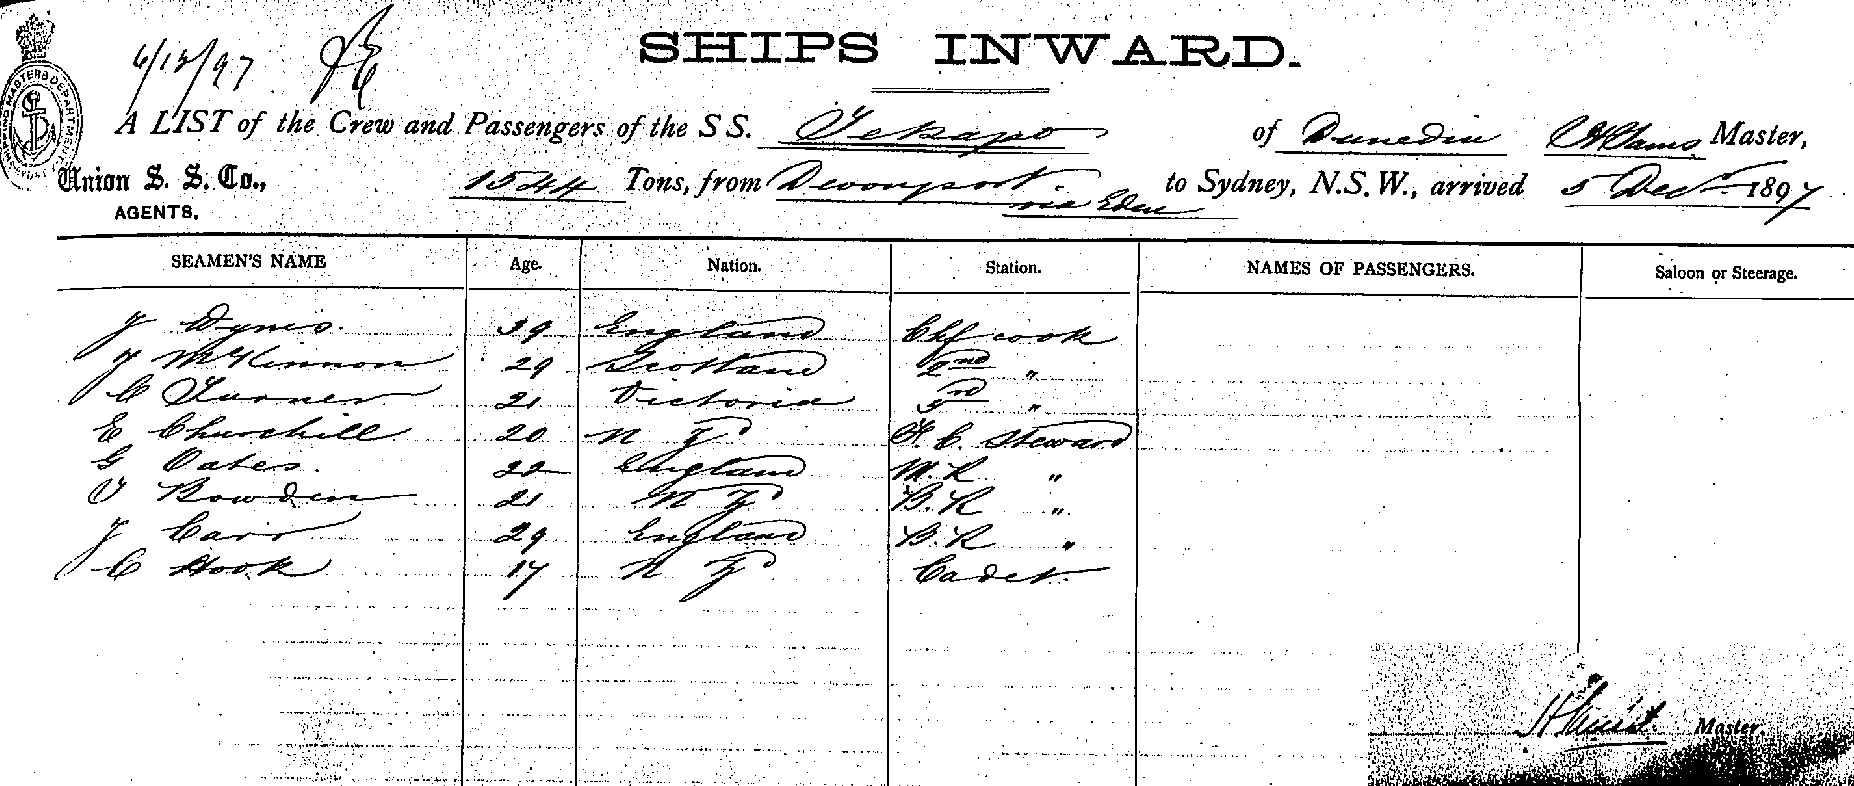 6/12/97
SHIPS INWARD.
A LIST of the Crew and Passengers of the S S. Tekapo of Dunedin Master,
Union S. S. Co., 1544 Tons, from Devonport. to Sydney, N.S.W., arrived 5 Decr. 1897
via Eden
AGENTS.
SEAMEN'S NAME Age. Nation. Station. NAMES OF PASSENGERS. Saloon or Steerage.
J Dynes. 39 England Chf cook
J McKinnon 29 Scotland 2nd "
C Turner 21 Victoria 3rd "
E Churchill 20 N Z F. C. Steward
G Oates. 22 England M. R "
J Bowden 21 N Z B. R "
J Carr 29 England B. R "
C Hook 17 N Z Cadet.
Master